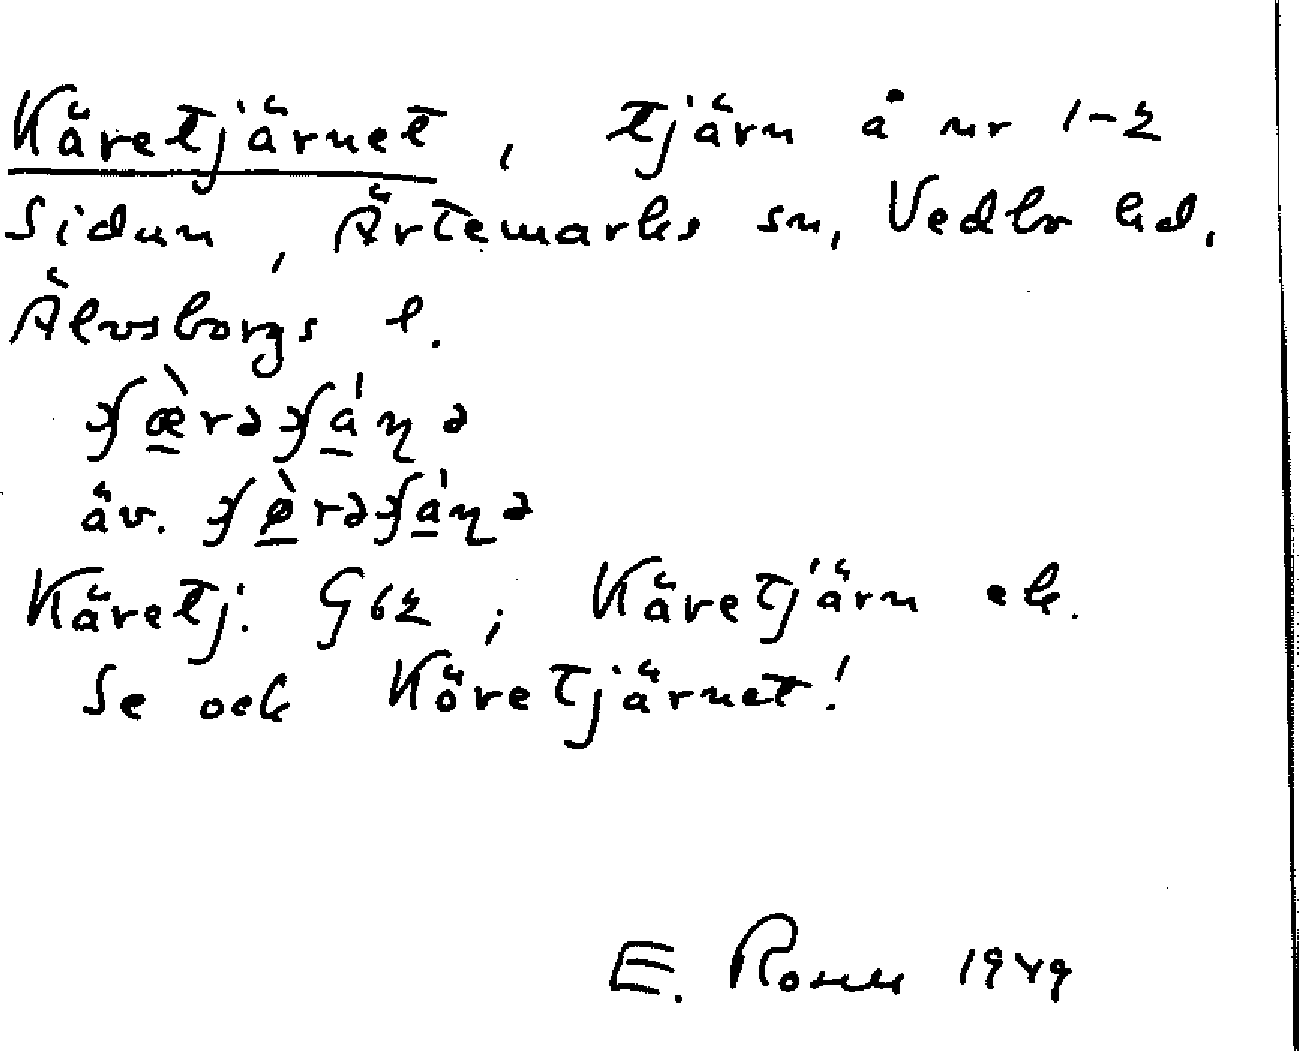 Käretjärnet, tjärn å nr 1-2
Sidan, Ärtemarks sn, Vedbo hd,
Älvsborgs l.
äv.
Käretj. G62; Käretjärn ek.
Se ock Köretjärnet!
E. Rosell 1949